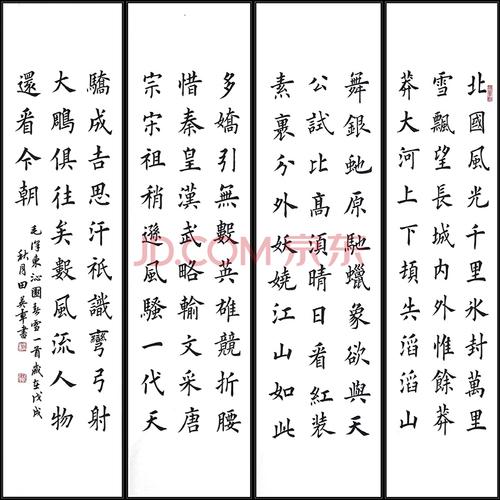 北國風光千里氷封萬里
雪飄望長城内外惟餘莽
莽大河上下頓失滔滔山
舞銀虵原馳蠟象欲與天
公試比高湏晴日看紅裝
素裹分外妖嬈江山如此
多嬌引無數英雄競折腰
惜秦皇漢武略輸文采唐
宗宋祖稍遜風騷一代天
驕成吉思汗祇識彎弓射
大鵰俱往矣數風流人物
還看今朝
毛澤東沁園春雪一首歲在戊戌
秋月田英章書
JD.COM 京东